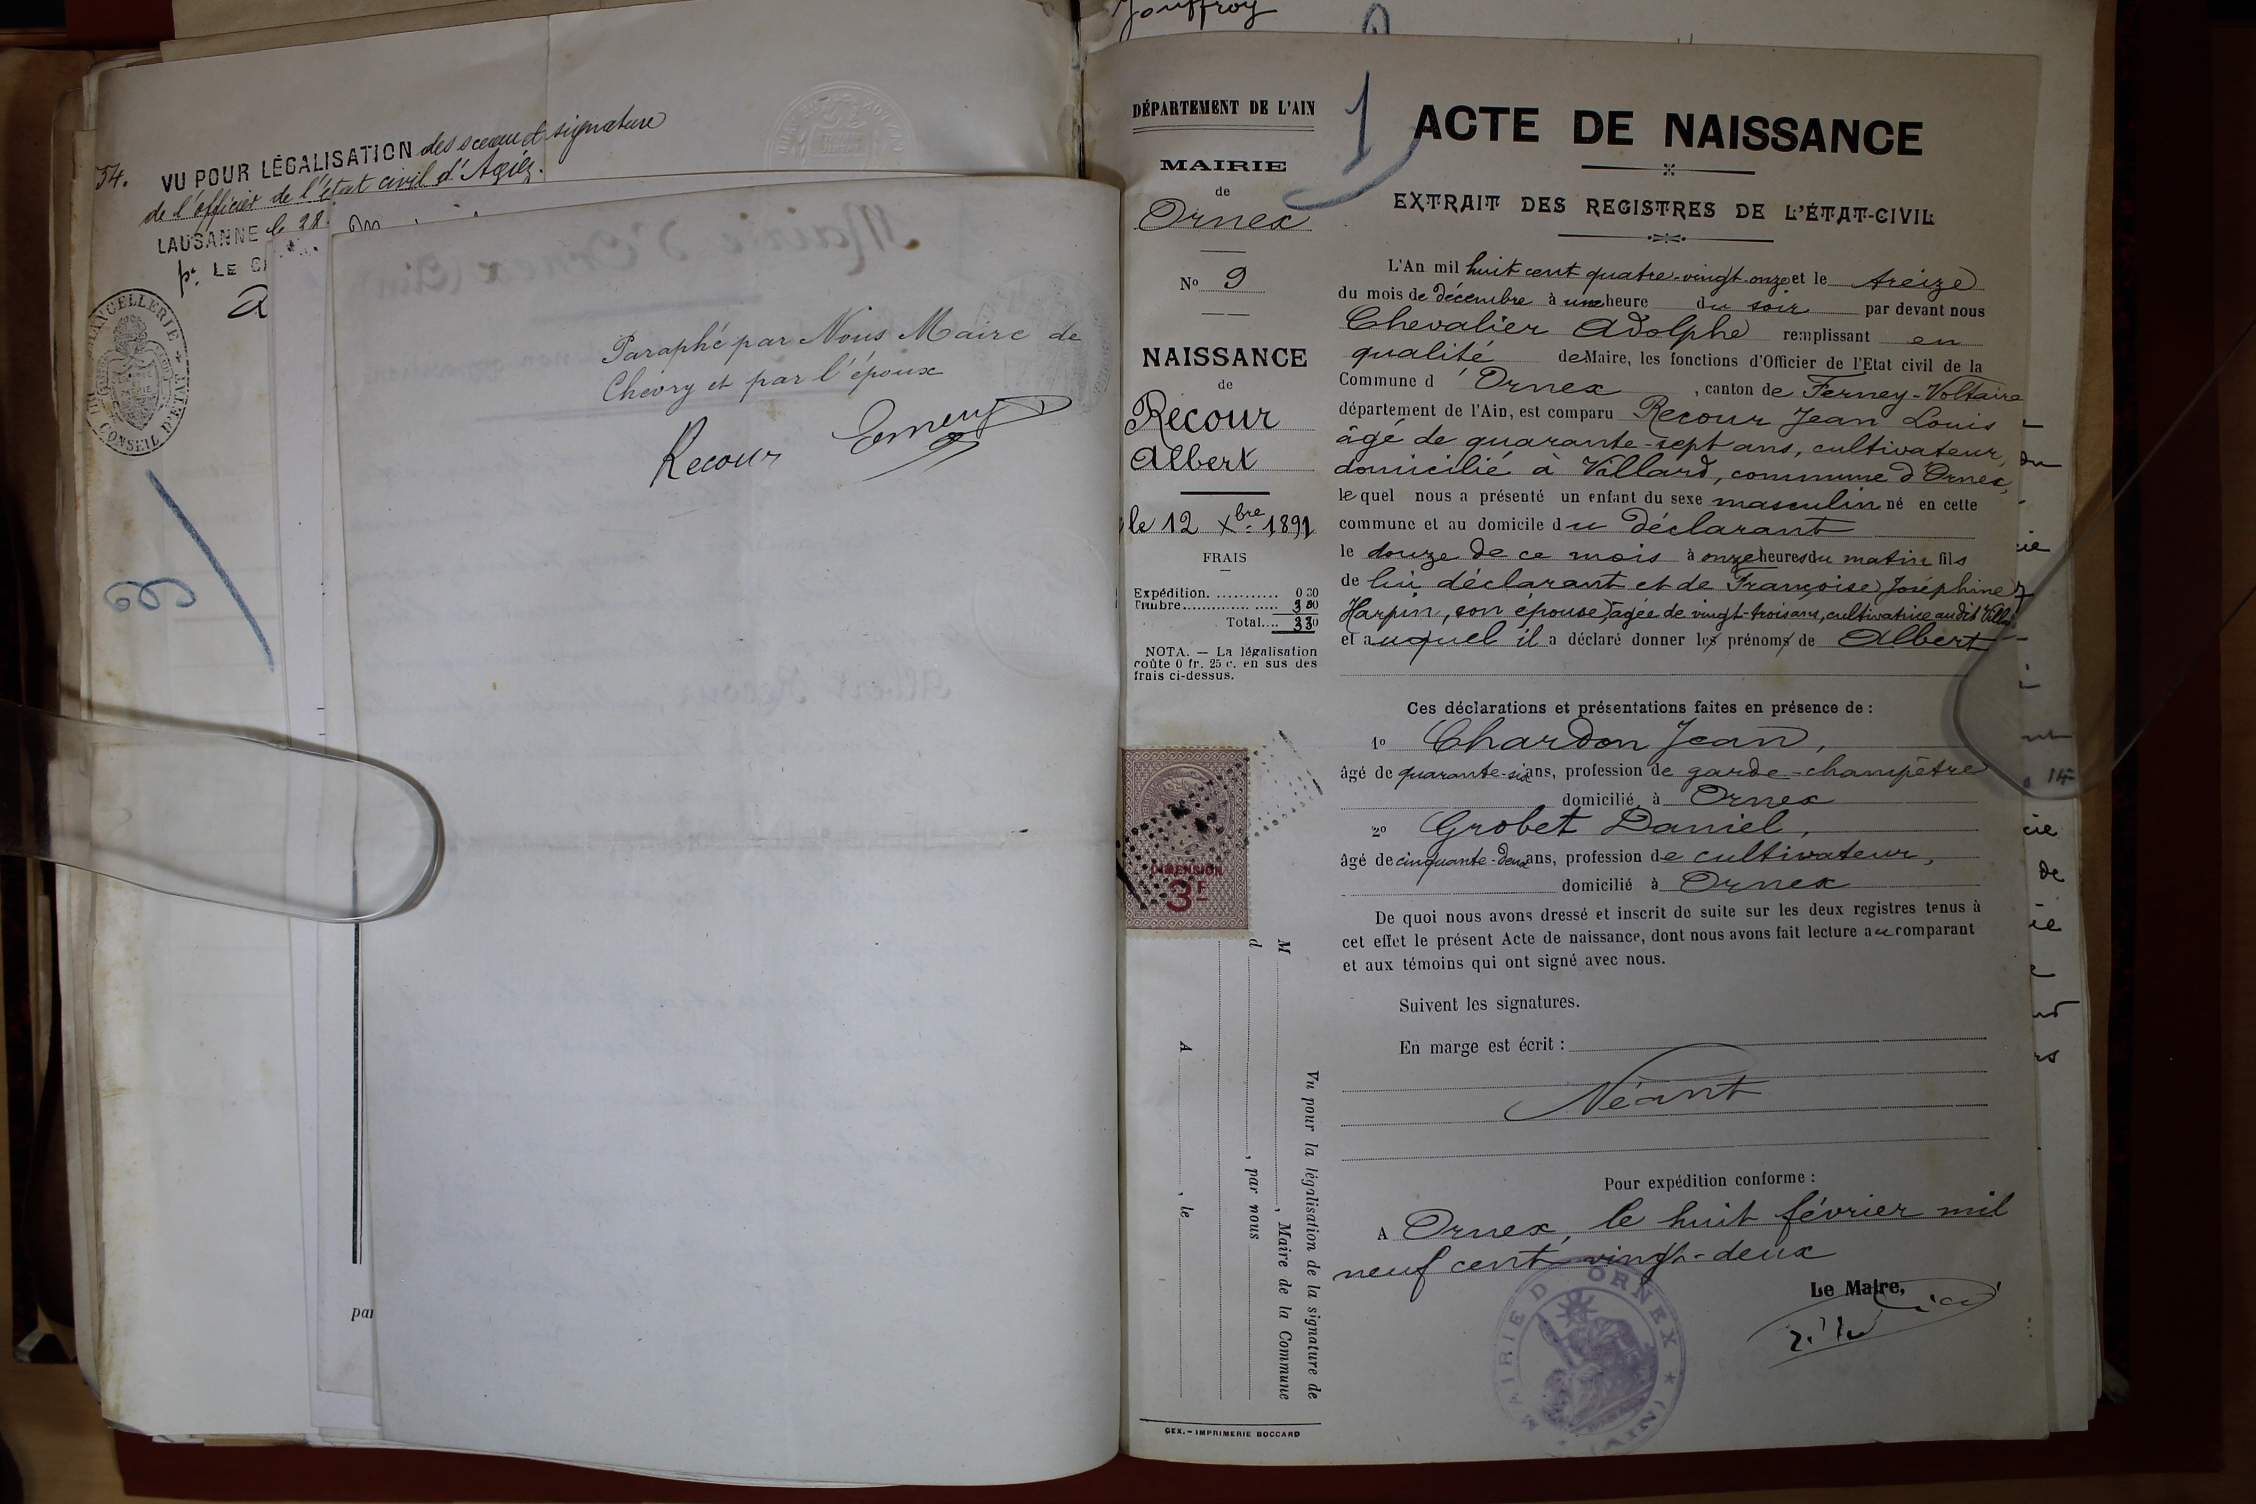 Jouffroy
54. VU POUR LÉGALISATION des sceau et signature
de l'officier de l'état civil d'Agiez.
LAUSANNE le 28
pr. LE
CHANCELLERIE
CONSEIL D'ETAT
Paraphé par Nous Maire de
Chevry et par l'époux
Recour Emery
par
DÉPARTEMENT DE L'AIN
MAIRIE
de
Ornex
No 9
NAISSANCE
de
Recour
Albert
le 12 Xbre 1891
FRAIS
Expédition. ............ 0 30
Timbre.................. 3 00
Total.... 3 30
NOTA. — La légalisation
coûte 0 fr. 25 c. en sus des
frais ci-dessus.
DIMENSION
3F
M , Maire de la Commune
d , par nous
A , le
Vu pour la légalisation de la signature de
GEX. – IMPRIMERIE BOCCARD
1
ACTE DE NAISSANCE
EXTRAIT DES REGISTRES DE L'ÉTAT-CIVIL
L'An mil huit cent quatre-vingt-onze et le treize
du mois de décembre à une heure du soir par devant nous
Chevalier Adolphe remplissant en
qualité de Maire, les fonctions d'Officier de l'Etat civil de la
Commune d'Ornex, canton de Ferney-Voltaire
département de l'Ain, est comparu Recour Jean Louis
âgé de quarante-sept ans, cultivateur,
domicilié à Villard, commune d'Ornex,
lequel nous a présenté un enfant du sexe masculin né en cette
commune et au domicile du déclarant
le douze de ce mois à onze heures du matin fils
de lui déclarant et de Françoise Joséphine
Harpin, son épouse, âgée de vingt-trois ans, cultivatrice audit Villard
et auquel il a déclaré donner les prénoms de Albert
Ces déclarations et présentations faites en présence de :
1o Chardon Jean,
âgé de quarante-six ans, profession de garde-champêtre
domicilié à Ornex
2o Grobet Daniel,
âgé de cinquante-deux ans, profession de cultivateur,
domicilié à Ornex
De quoi nous avons dressé et inscrit de suite sur les deux registres tenus à
cet effet le présent Acte de naissance, dont nous avons fait lecture au comparant
et aux témoins qui ont signé avec nous.
Suivent les signatures.
En marge est écrit :
Néant
Pour expédition conforme :
A Ornex, le huit février mil
neuf cent vingt-deux
Le Maire,
MAIRIE D'ORNEX * (AIN)